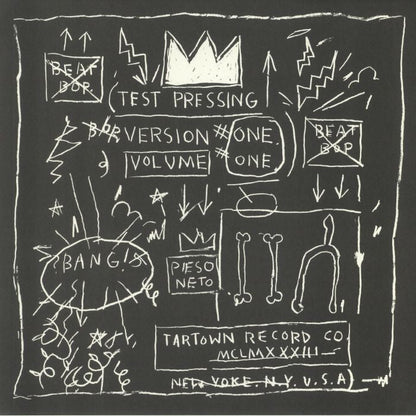 BEAT
BOP
TEST PRESSING
BOP VERSION #ONE.
VOLUME #ONE
BEAT
BOP
BANG!
PESO
NETO
TARTOWN RECORD CO
MCLMXXXIII
NEW YORK. N.Y. U.S.A